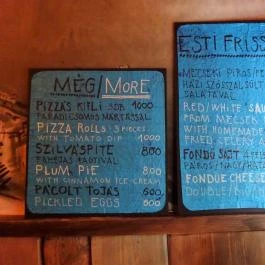 MÉG/MORE
PIZZÁS KIFLI 3DB 1000
PARADICSOMOS MÁRTÁSSAL
PIZZA ROLLS 3 PIECES
WITH TOMATO DIP 1000
SZILVÁSPITE 800
FAHÉJAS FAGYIVAL
PLUM PIE 800
WITH CINNAMON ICE CREAM
PÁCOLT TOJÁS 600
PICKLED EGGS 600
ESTI FRISS
MECSEKI PIROS/FE
HÁZI SZÓSSZAL SÜLT
SALÁTÁVAL
RED/WHITE SAU
FROM MECSEK
WITH HOMEMADE
FRIED CELERY
FONDÜ SAJT
PÁROS/NAGY/HÁZ
FONDUE CHEESE
DOUBLE/BIG/